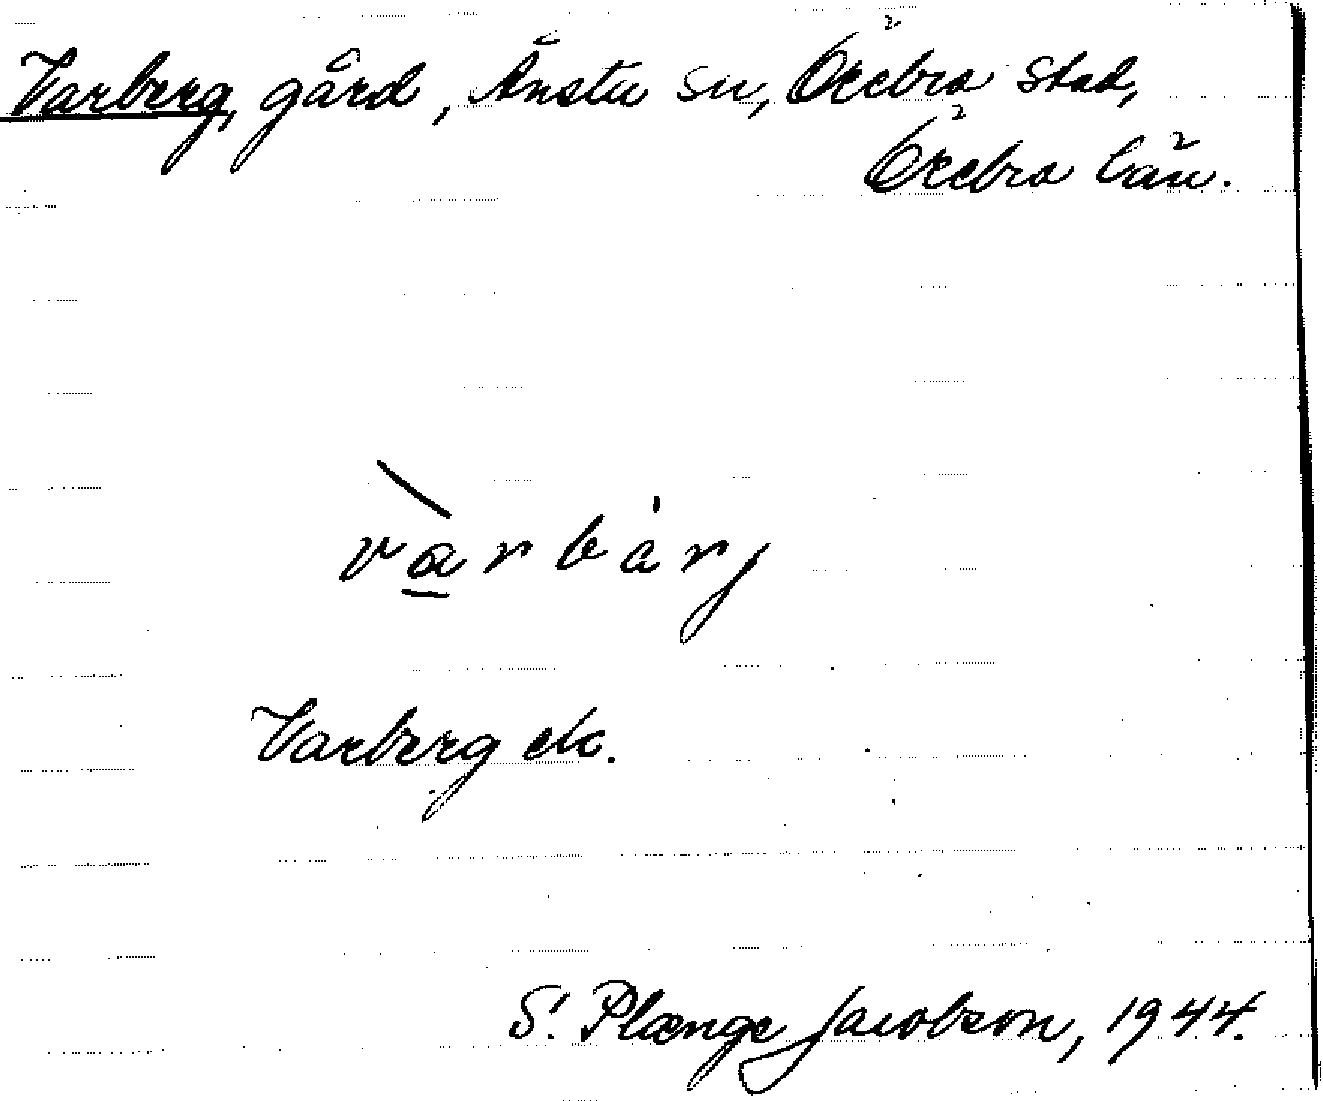 Varberg, gård, Ånsta sn, Örebro stad,
Örebro län.
vàrbàrj
Varberg etc.
S. Plænge Jacobson, 1944.